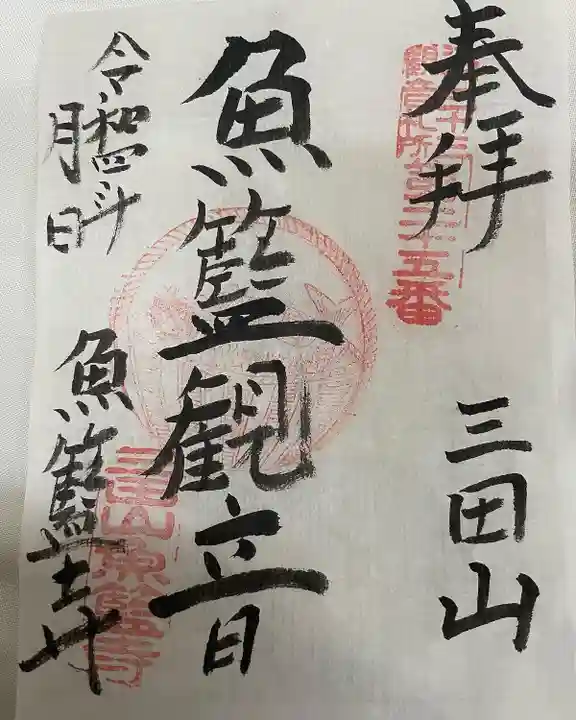 奉拝
三田山
魚籃観音
令和四年
月日
魚籃寺
観音札所第二十五番
三田山魚籃寺